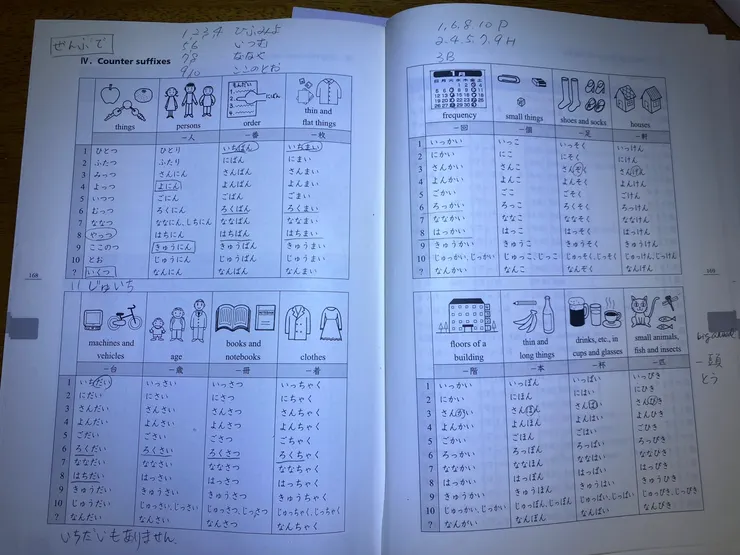 ぜんぶで
1,2,3,4 ひふみよ
5 6 いつむ
7 8 ななや
9 10 ここのとお
Ⅳ. Counter suffixes
things persons order thin and flat things
－人 －番 －枚
1 ひとつ ひとり いちばん いちまい
2 ふたつ ふたり にばん にまい
3 みっつ さんにん さんばん さんまい
4 よっつ よにん よんばん よんまい
5 いつつ ごにん ごばん ごまい
6 むっつ ろくにん ろくばん ろくまい
7 ななつ ななにん, しちにん ななばん ななまい
8 やっつ はちにん はちばん はちまい
9 ここのつ きゅうにん きゅうばん きゅうまい
10 とお じゅうにん じゅうばん じゅうまい
? いくつ なんにん なんばん なんまい
168
11 じゅういち
machines and vehicles age books and notebooks clothes
－台 －歳 －冊 －着
1 いちだい いっさい いっさつ いっちゃく
2 にだい にさい にさつ にちゃく
3 さんだい さんさい さんさつ さんちゃく
4 よんだい よんさい よんさつ よんちゃく
5 ごだい ごさい ごさつ ごちゃく
6 ろくだい ろくさい ろくさつ ろくちゃく
7 ななだい ななさい ななさつ ななちゃく
8 はちだい はっさい はっさつ はっちゃく
9 きゅうだい きゅうさい きゅうさつ きゅうちゃく
10 じゅうだい じゅっさい, じっさい じゅっさつ, じっさつ じゅっちゃく, じっちゃく
? なんだい なんさい なんさつ なんちゃく
いちだいもありません.
1,6,8,10 P
2,4,5,7,9 H
3,B
frequency small things shoes and socks houses
－回 －個 －足 －軒
1 いっかい いっこ いっそく いっけん
2 にかい にこ にそく にけん
3 さんかい さんこ さんぞく さんげん
4 よんかい よんこ よんそく よんけん
5 ごかい ごこ ごそく ごけん
6 ろっかい ろっこ ろくそく ろっけん
7 ななかい ななこ ななそく ななけん
8 はっかい はっこ はっそく はっけん
9 きゅうかい きゅうこ きゅうそく きゅうけん
10 じゅっかい, じっかい じゅっこ, じっこ じゅっそく, じっそく じゅっけん, じっけん
? なんかい なんこ なんぞく なんげん
169
floors of a building thin and long things drinks, etc., in cups and glasses small animals, fish and insects
－階 －本 －杯 －匹
1 いっかい いっぽん いっぱい いっぴき
2 にかい にほん にはい にひき
3 さんがい さんぼん さんばい さんびき
4 よんかい よんほん よんはい よんひき
5 ごかい ごほん ごはい ごひき
6 ろっかい ろっぽん ろっぱい ろっぴき
7 ななかい ななほん ななはい ななひき
8 はっかい はっぽん はっぱい はっぴき
9 きゅうかい きゅうほん きゅうはい きゅうひき
10 じゅっかい, じっかい じゅっぽん, じっぽん じゅっぱい, じっぱい じゅっぴき, じっぴき
? なんがい なんぼん なんばい なんびき
一頭
とう